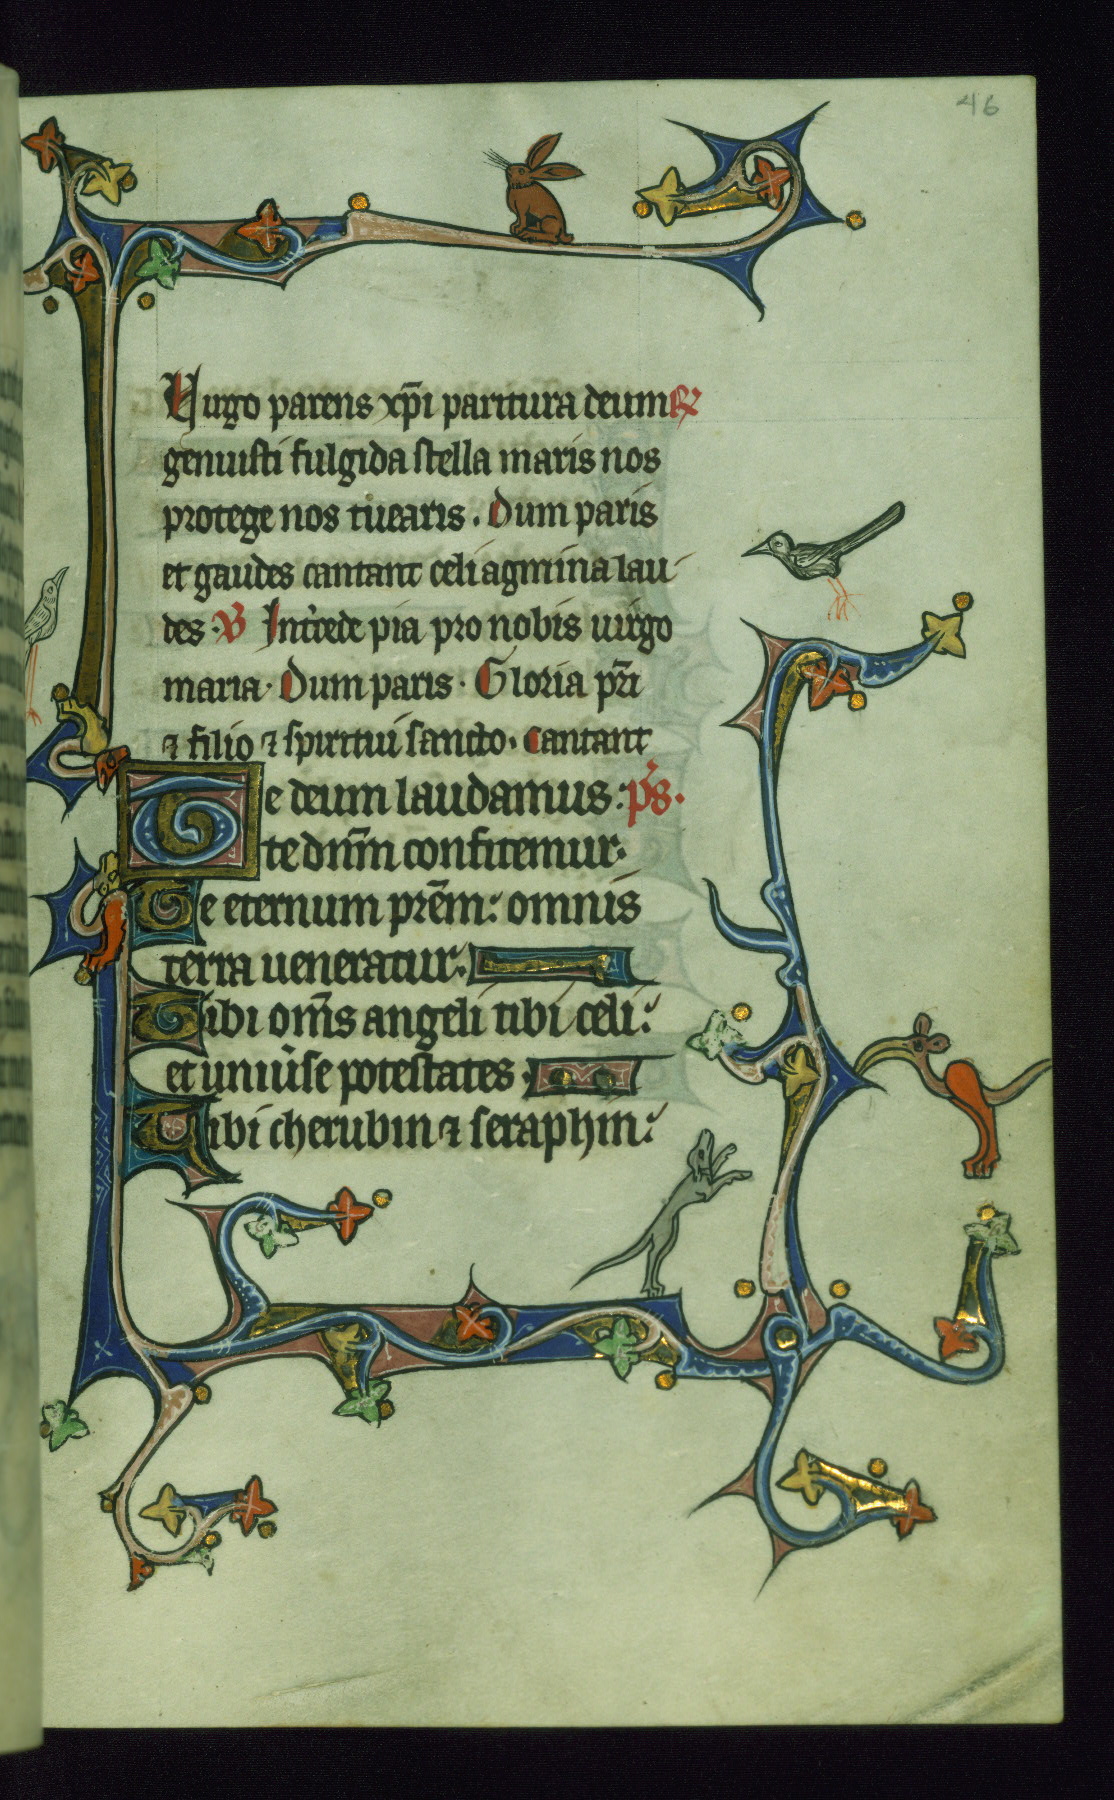 46
Uirgo parens xp̄i paritura deum℟
genuisti fulgida stella maris nos
protege nos tuearis. Dum paris
et gaudes cantant celi agmina lau
des. ℣ Int̾cede pia pro nobis uirgo
maria. Dum paris. Gloria pr̄i
⁊ filio ⁊ spiritui sancto. Cantant
Te deum laudamus: p̄s.
te dnm̄ confitemur.
Te eternum prēm: omnis
terra ueneratur.
Tibi om̄s angeli tibi celi:
et uniu̾se potestates.
Tibi cherubin ⁊ seraphin: